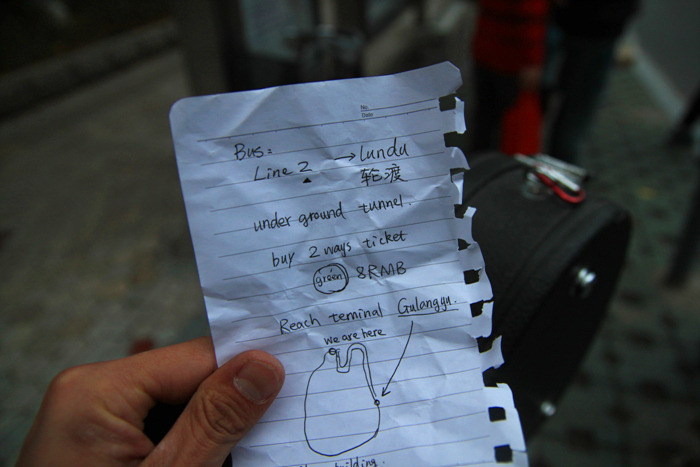 No.
Date
Bus:
Line 2 → Lundu
轮渡
under ground tunnel.
buy 2 ways ticket
green 8RMB
Reach teminal Gulangyu.
we are here
building.